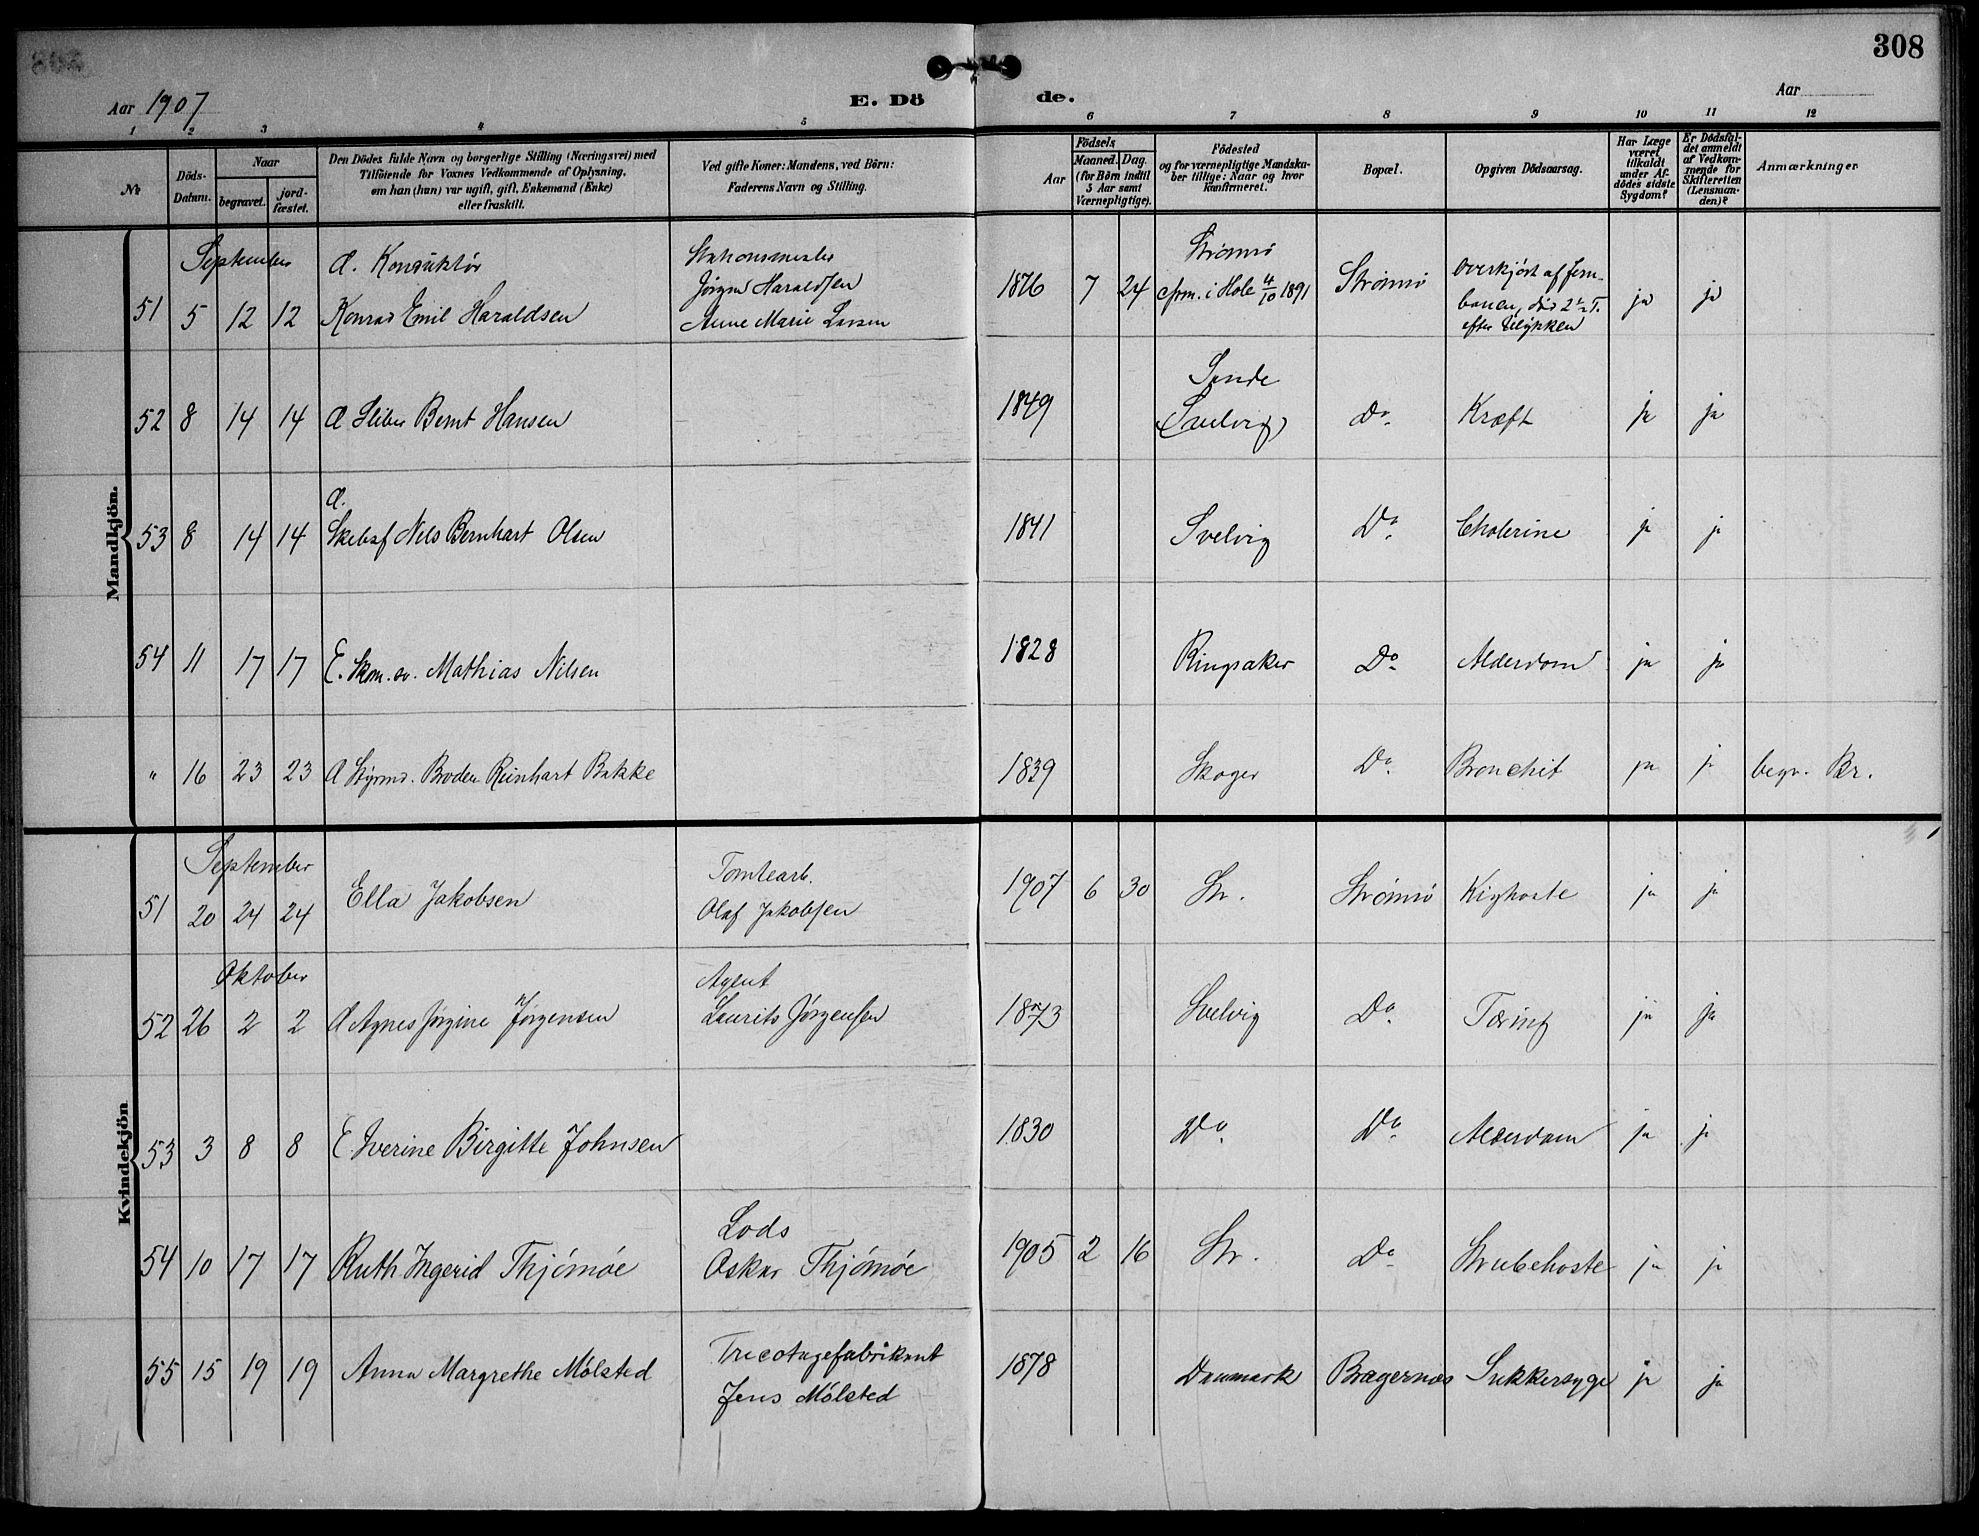 308
Aar 1907
E. Dö de.
Aar
1 2 3 4 5 6 7 8 9 10 11 12
No
Döds-Datum.
Naar
begravet.
jord-fæstet.
Den Dödes fulde Navn og borgerlige Stilling (Næringsvei) med
Tilföiende for Voxnes Vedkommende af Oplysning,
om han (hun) var ugift, gift, Enkemand (Enke)
eller fraskilt.
Ved gifte Koner: Mandens, ved Börn:
Faderens Navn og Stilling.
Födsels
Aar
Maaned. Dag.
(for Börn indtil
5 Aar samt
Værnepligtige).
Födested
og for værnepligtige Mandska-
ber tillige: Naar og hvor
konfirmeret.
Bopæl.
Opgiven Dödsaarsag.
Har Læge
været
tilkaldt
under Af-
dödes sidste
Sygdom?
Er Dödsfal-
det anmeldt
af Vedkom-
mende for
Skifteretten
(Lensman-
den)?
Anmærkninger
Mandkjön.
September
51 5 12 12 G. Konduktör
Konrad Emil Haraldsen
Stationsmester
Jörgen Haraldsen
Anne Marie Larsen
1876 7 24
Strømsö
cfrm. i Hole 4/10 1891
Strømsö
Overkjört af jern-
banen, död 2 1/2 T.
efter Ulykken
ja ja
52 8 14 14 G Sliber Bernt Hansen 1849 Sande (Svelvig) Do Kræft ja ja
53 8 14 14 G. Skibsf Nels Bernhart Olsen 1841 Svelvig Do Cholerine ja ja
54 11 17 17 E. Skom. sv. Mathias Nilsen 1828 Ringsaker Do Alderdom ja ja
" 16 23 23 G Styrmd. Reinhart Bakke 1839 Skoger Do Bronchit ja ja begr. Br.
Kvindekjön
September
51 20 24 24 Ella Jakobsen Tomtearb. Olaf Jakobsen 1907 6 30 Str. Strömsö Kighoste ja ja
Oktober
52 26 2 2 G Agnes Jörgine Jörgensen Agent Laurits Jörgensen 1873 Svelvig Do Tæring ja ja
53 3 8 8 E Iverine Birgitte Johnsen 1830 Do Do Alderdom ja ja
54 10 17 17 Ruth Ingerid Thjömöe Lods Oskar Thjömöe 1905 2 16 Str. Do Strubehoste ja ja
55 15 19 19 Anna Margrethe Mölsted Tricotagefabrikant Jens Mölsted 1878 Danmark Bragernæs Sukkersyge ja ja